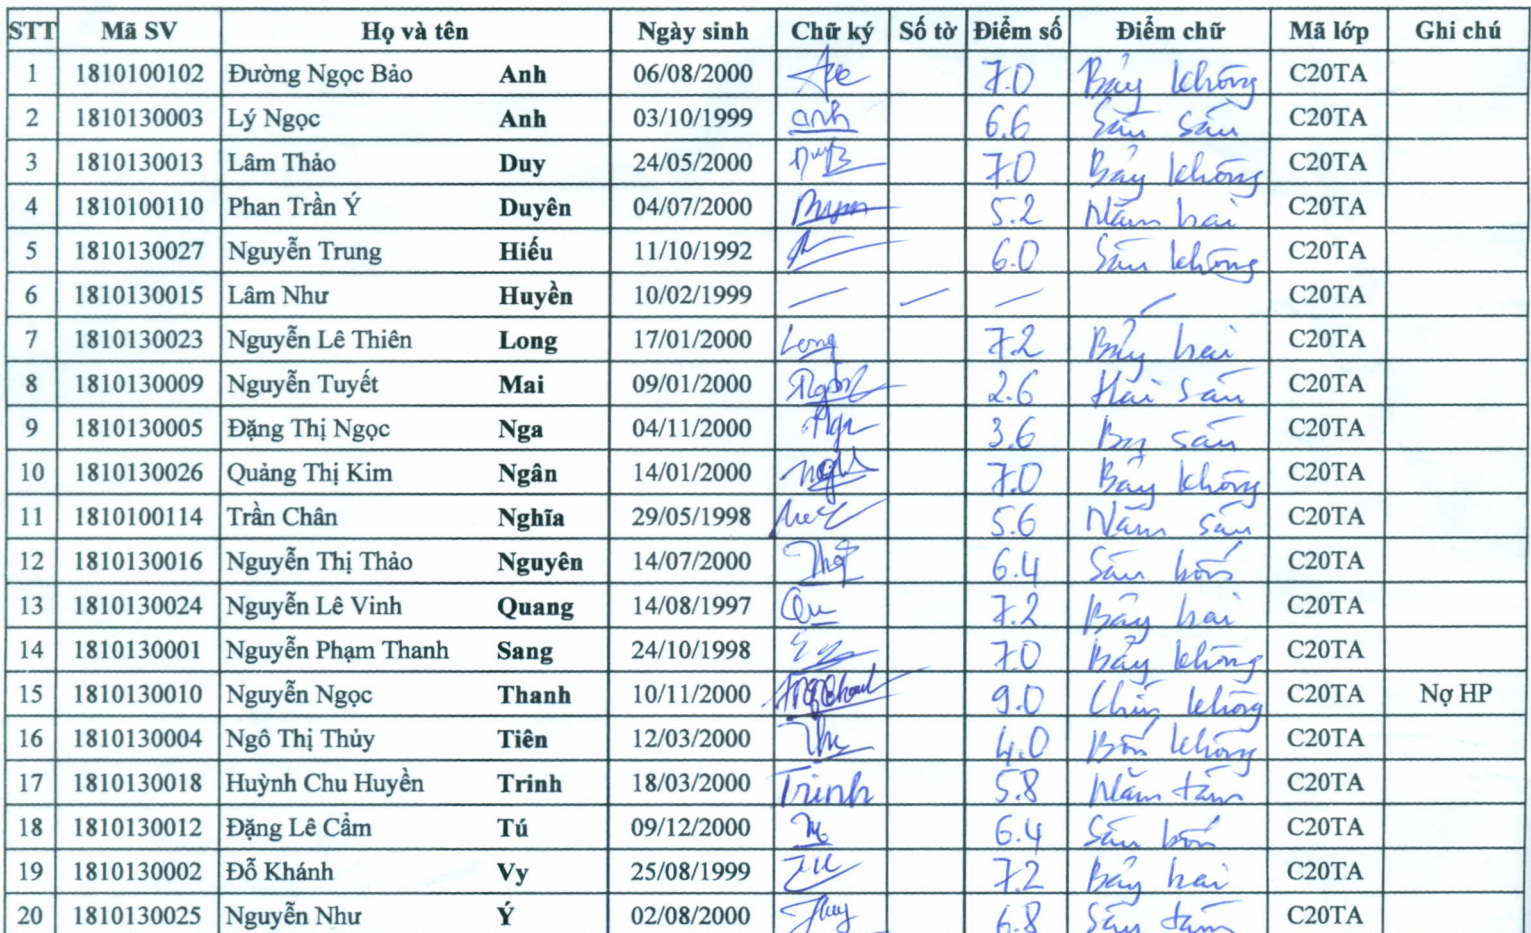 STT Mã SV Họ và tên Ngày sinh Chữ ký Số tờ Điểm số Điểm chữ Mã lớp Ghi chú
1 1810100102 Đường Ngọc Bảo Anh 06/08/2000 7.0 Bảy không C20TA
2 1810130003 Lý Ngọc Anh 03/10/1999 anh 6.6 Sáu sáu C20TA
3 1810130013 Lâm Thảo Duy 24/05/2000 7.0 Bảy không C20TA
4 1810100110 Phan Trần Ý Duyên 04/07/2000 5.2 Năm hai C20TA
5 1810130027 Nguyễn Trung Hiếu 11/10/1992 6.0 Sáu không C20TA
6 1810130015 Lâm Như Huyền 10/02/1999 — — — — C20TA
7 1810130023 Nguyễn Lê Thiên Long 17/01/2000 Long 7.2 Bảy hai C20TA
8 1810130009 Nguyễn Tuyết Mai 09/01/2000 2.6 Hai sáu C20TA
9 1810130005 Đặng Thị Ngọc Nga 04/11/2000 Nga 3.6 Ba sáu C20TA
10 1810130026 Quảng Thị Kim Ngân 14/01/2000 7.0 Bảy không C20TA
11 1810100114 Trần Chân Nghĩa 29/05/1998 5.6 Năm sáu C20TA
12 1810130016 Nguyễn Thị Thảo Nguyên 14/07/2000 6.4 Sáu bốn C20TA
13 1810130024 Nguyễn Lê Vinh Quang 14/08/1997 Qu 7.2 Bảy hai C20TA
14 1810130001 Nguyễn Phạm Thanh Sang 24/10/1998 7.0 Bảy không C20TA
15 1810130010 Nguyễn Ngọc Thanh 10/11/2000 9.0 Chín không C20TA Nợ HP
16 1810130004 Ngô Thị Thủy Tiên 12/03/2000 4.0 Bốn không C20TA
17 1810130018 Huỳnh Chu Huyền Trinh 18/03/2000 Trinh 5.8 Năm tám C20TA
18 1810130012 Đặng Lê Cẩm Tú 09/12/2000 6.4 Sáu bốn C20TA
19 1810130002 Đỗ Khánh Vy 25/08/1999 7.2 Bảy hai C20TA
20 1810130025 Nguyễn Như Ý 02/08/2000 6.8 Sáu tám C20TA